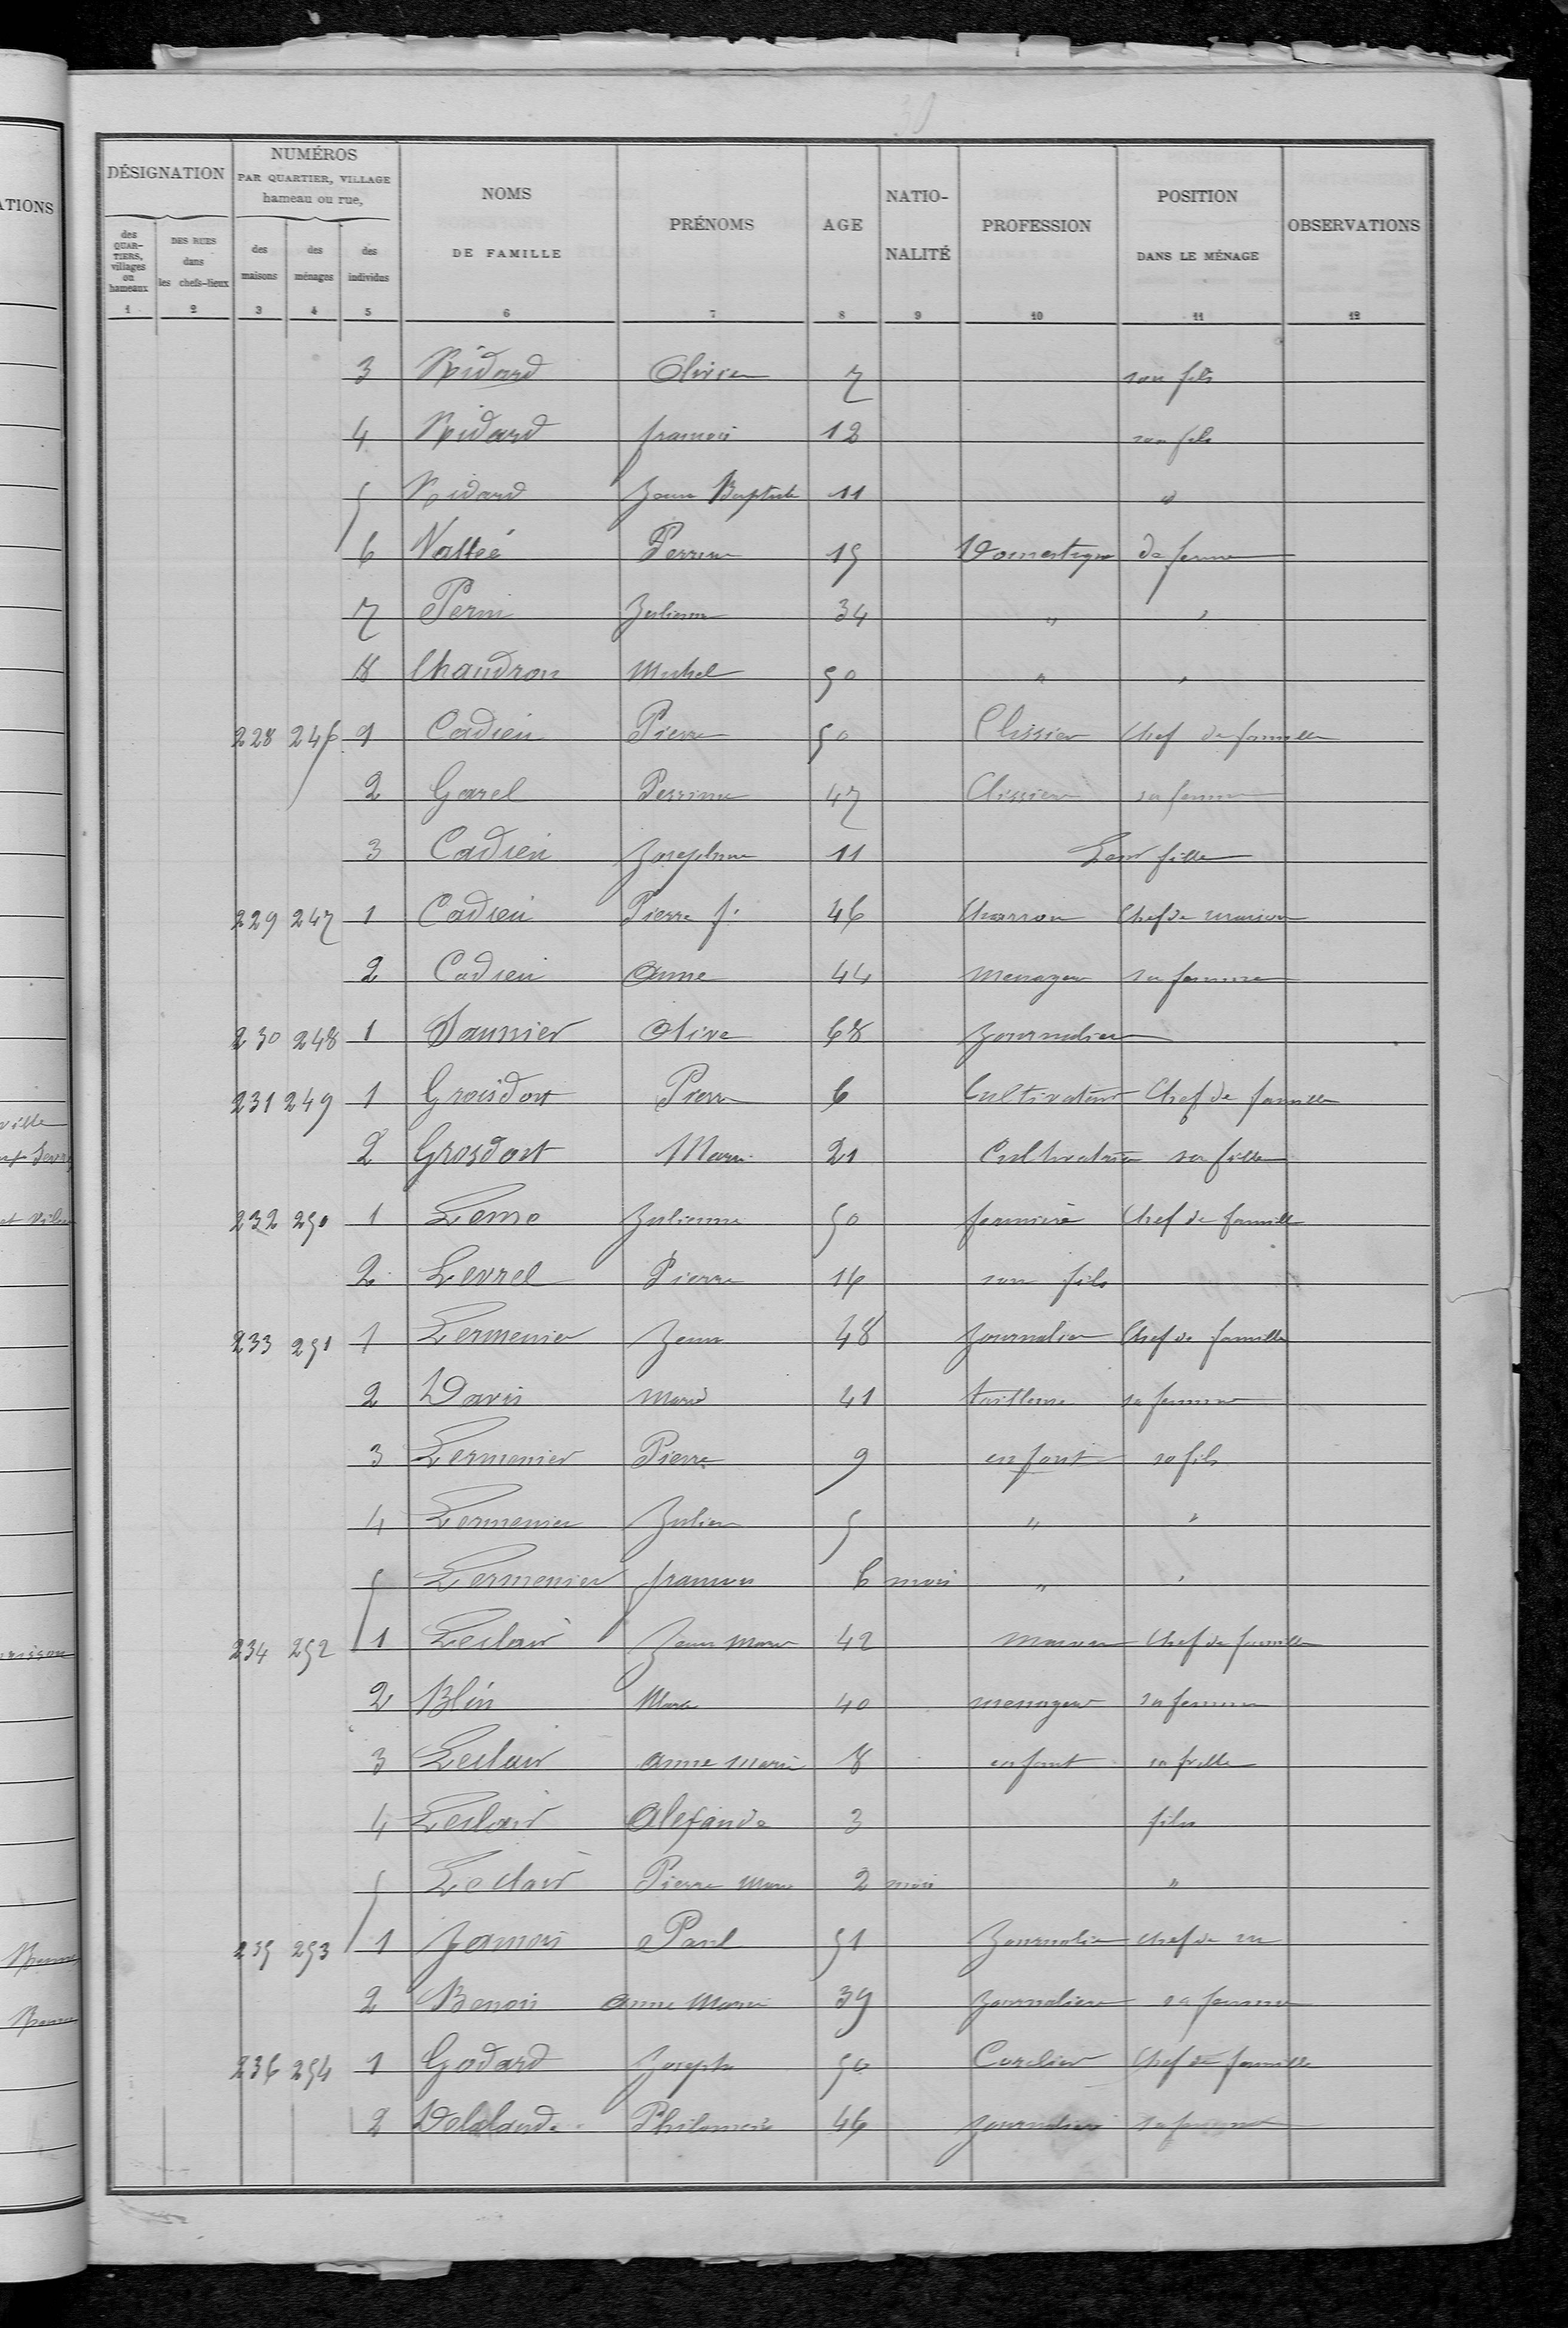 30
DÉSIGNATION
NUMÉROS
PAR QUARTIER, VILLAGE
hameau ou rue,
des QUARTIERS, villages ou hameaux
DES RUES dans les chefs-lieux
des maisons
des ménages
des individus
NOMS DE FAMILLE
PRÉNOMS
AGE
NATIONALITÉ
PROFESSION
POSITION DANS LE MÉNAGE
OBSERVATIONS
1 2 3 4 5 6 7 8 9 10 11 12
3 Olivier 7 son fils
4 francois 12 son fils
5 Jean Baptiste 11 "
6 Vallée Perrine 15 Domestique de ferme
7 Perin Julienne 34 " "
8 Chaudron Michel 50 " "
228 246 1 Cadieu Pierre 50 Clissier Chef de famille
2 Garel Perrine 47 Clissière sa femme
3 Cadieu Josephine 11 Leur fille
229 247 1 Cadieu Pierre f. 46 Charron Chef de maison
2 Cadieu Anne 44 menagère sa femme
230 248 1 Saunier Olive 68 Journalière
231 249 1 Groisdort Pierre 6 Cultivateur Chef de famille
2 Grosdort Marie 21 Cultivatrice sa fille
232 250 1 Julienne 50 fermière Chef de famille
2 Levrel Pierre 16 son fils
233 251 1 Lermenier Jean 48 Journalier Chef de famille
2 Davis Marie 41 tailleuse sa femme
3 Lermenier Pierre 9 enfant so fils
4 Lermenier Julien 5 " "
5 Lermenier francois 6 mois " "
234 252 1 Leclair Jean Marie 42 Chef de famille
2 Blin Marie 40 menagère sa femme
3 Leclair Anne Marie 8 enfant sa fille
4 Leclair Alexandre 3 fils
5 Leclair Pierre Marie 2 mois "
235 253 1 Jamois Paul 51 Journalier chef de m
2 Benois Anne Marie 39 Journalière sa femme
236 254 1 Godard Joseph 50 Cerclier Chef de famille
2 Delalande Philomène 46 Journalière sa femme